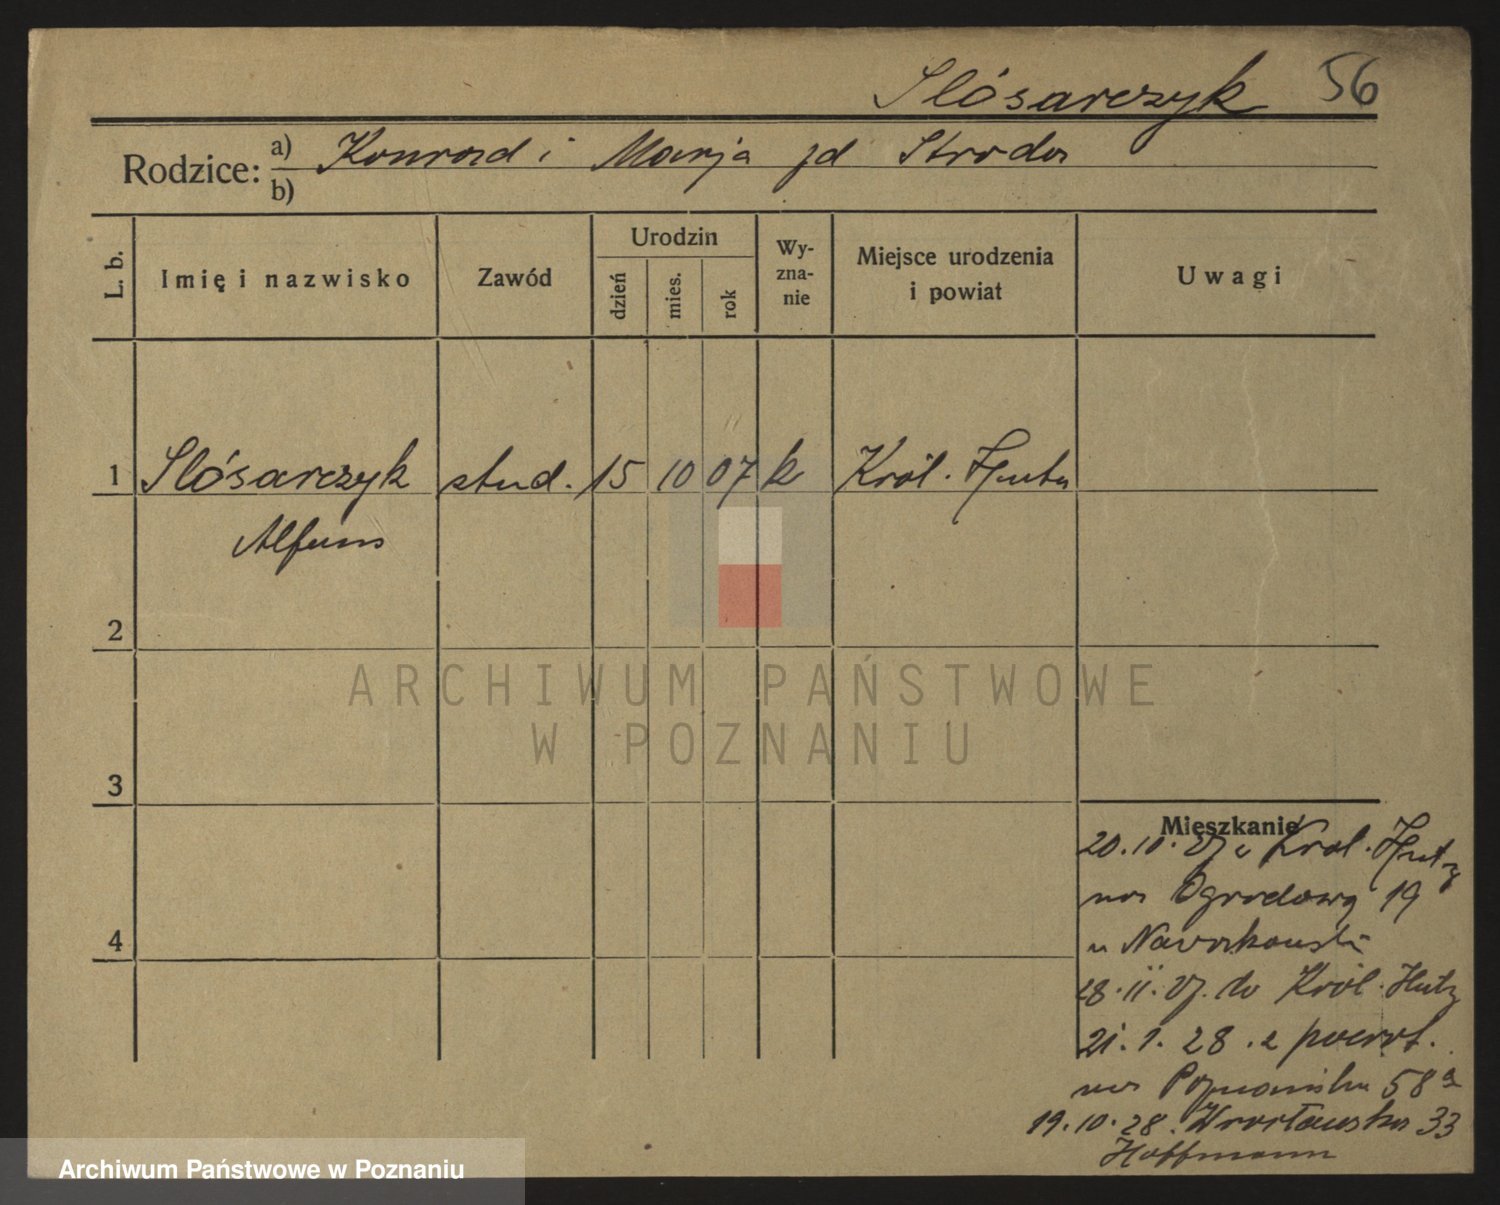 Slósarczyk 56
Rodzice: a) Konrad i Marja zd Stroda
b)
L. b. Imię i nazwisko Zawód Urodzin dzień mies. rok Wy-zna-nie Miejsce urodzenia i powiat Uwagi
1 Slósarczyk stud. 15 10 07 k Król. Huta
Alfons
2
3
4
Mieszkanie
20.10.27 z Król. Huty
na Ogrodową 19
u Nawrkowski
28.11.27. do Król. Huty
21.1.28. z powrot.
na Poznańska 58a
19.10.28. Wrocławska 33
Hoffmann
ARCHIWUM PAŃSTWOWE
W POZNANIU
Archiwum Państwowe w Poznaniu